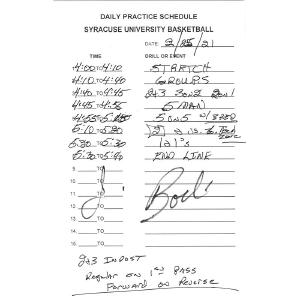 DAILY PRACTICE SCHEDULE
SYRACUSE UNIVERSITY BASKETBALL
DATE: 2/25/21
TIME DRILL OR EVENT
4:00 TO 4:10 STRETCH
4:10 TO 4:40 GROUPS
4:40 TO 4:45 2+3 ZONE
4:45 TO 4:55 5 MAN
4:55 TO 5 ON 5
5:10 TO
5:20 TO 5:30 1 ON 1's
5:30 TO 5:40 END LINE
9. TO
10. TO
11. TO
12. TO
13. TO
14. TO
15. TO
16. TO
2+3 IN POST
REGULAR ON 1st PASS
FORWARD ON REVERSE